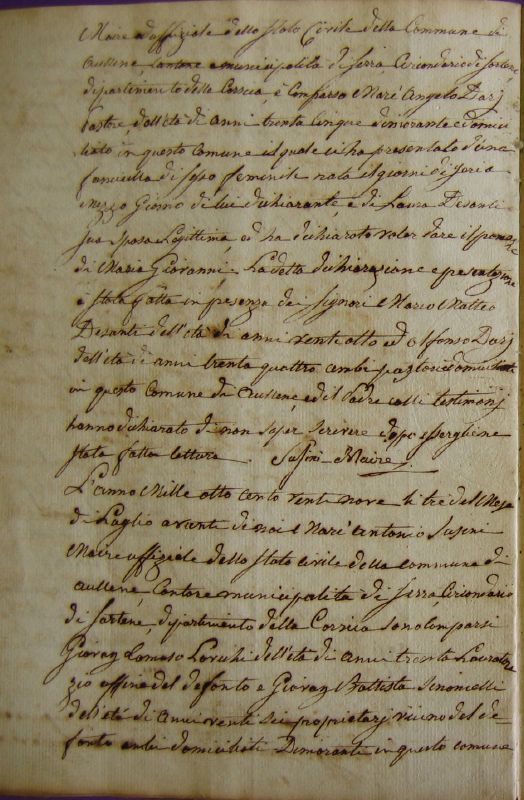 Maire ed offiziale dello stato Civile della Commune di
Aullene, Cantone e municipalita di Serra, Circondario di Sartene,
dipartimento della Corsica, è Comparso Mare' Angelo Darj
Pastore, dall'età di anni trenta cinque dimorante e domici
liato in questo Comune il quale ci ha presentato d'una
fanciulla di sesso feminile nata il giorni di jeri a
mezzo Giorno di lui dichiarante, e di Laura Desanti
sua sposa Legittima, ed ha dichiarato voler dare il prenome
di Maria Giovanni. La detta dichiarazione e presentazione
è stata fatta in presenza dei Signori Marco Matteo
Desanti dell'età di anni vent'otto ed Alfonso Darj
dell'età di anni trenta quattro ambi pastori domiciliati
in questo Comune di Aullene, ed il Padre colli testimonj
hanno dichiarato di non saper scrivere doppo essergliene
stata fatta lettura. Susini Maire
L'anno Mille otto cento venti nove li tre del Mese
di Luglio avanti di noi Mare' Antonio Susini
Maire uffiziale dello stato civile della commune di
Aullene, Cantone municipalita di Serra, Circondario
di Sartene, dipartimento della Corsica sono comparsi
Giovan Tomaso Lorichi dell'età di anni trenta Lavora
zio affine del defonto e Giovan Battista Simonelli
dell'età di anni venti sei proprietarj vicino del de-
fonto ambi domiciliati Dimoranti in questo comune